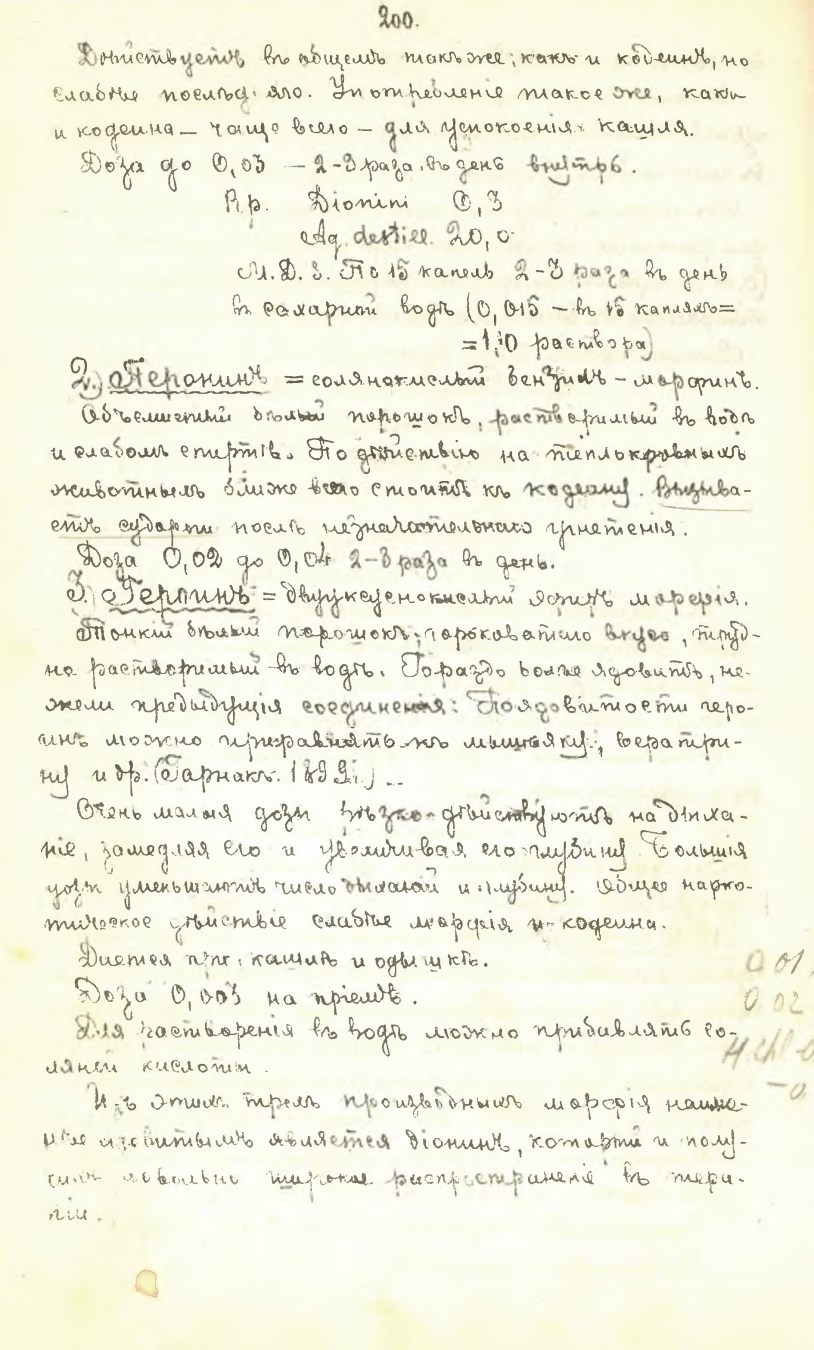 200.
Дѣйствуетъ въ общемъ также, какъ и кодеинъ, но
слабѣе послѣд. яго. Употребленіе такое же, какъ
и кодеина — чаще всего — для успокоенія кашля.
Доза до 0,03 — 2-3 раза въ день внутрь.
Rp. Dionini 0,3
Aq. destill. 20,0
M. D. S. По 15 капель 2-3 раза въ день
въ сахарной водѣ (0,015 — въ 15 капляхъ =
= 1,0 раствора)
2.) Перонинъ = солянокислый бензилъ - морфинъ.
Объемистый бѣлый порошокъ, растворимый въ водѣ
и слабомъ спиртѣ. По дѣйствію на теплокровныхъ
животныхъ ближе всего стоитъ къ кодеину. Вызыва-
етъ судороги послѣ незначительнаго угнетенія.
Доза 0,02 до 0,04 2-3 раза въ день.
3.) Героинъ = двууксуснокислый эфиръ морфія.
Тонкій бѣлый порошокъ, горьковатаго вкуса, труд-
но растворимый въ водѣ. Гораздо болѣе ядовитъ, не-
жели предыдущія соединенія: По ядовитости геро-
инъ можно приравнять къ мышьяку, вератри-
ну и др. (Гарнакъ. 1899.)
Очень малыя дозы рѣзко дѣйствуютъ на дыха-
ніе, замедляя его и увеличивая его глубину. Большія
дозы уменьшаютъ число дыханій и глубину. Общее нарко-
тическое дѣйствіе слабѣе морфія и кодеина.
Дается при кашлѣ и одышкѣ.
Доза 0,003 на пріемъ.
0 01
0 02
Для растворенія въ водѣ можно прибавлять со-
ляной кислоты.
Изъ этихъ трехъ производныхъ морфія наиме-
нѣе ядовитымъ является діонинъ, который и полу-
чилъ довольно широкое распространеніе въ тера-
піи.